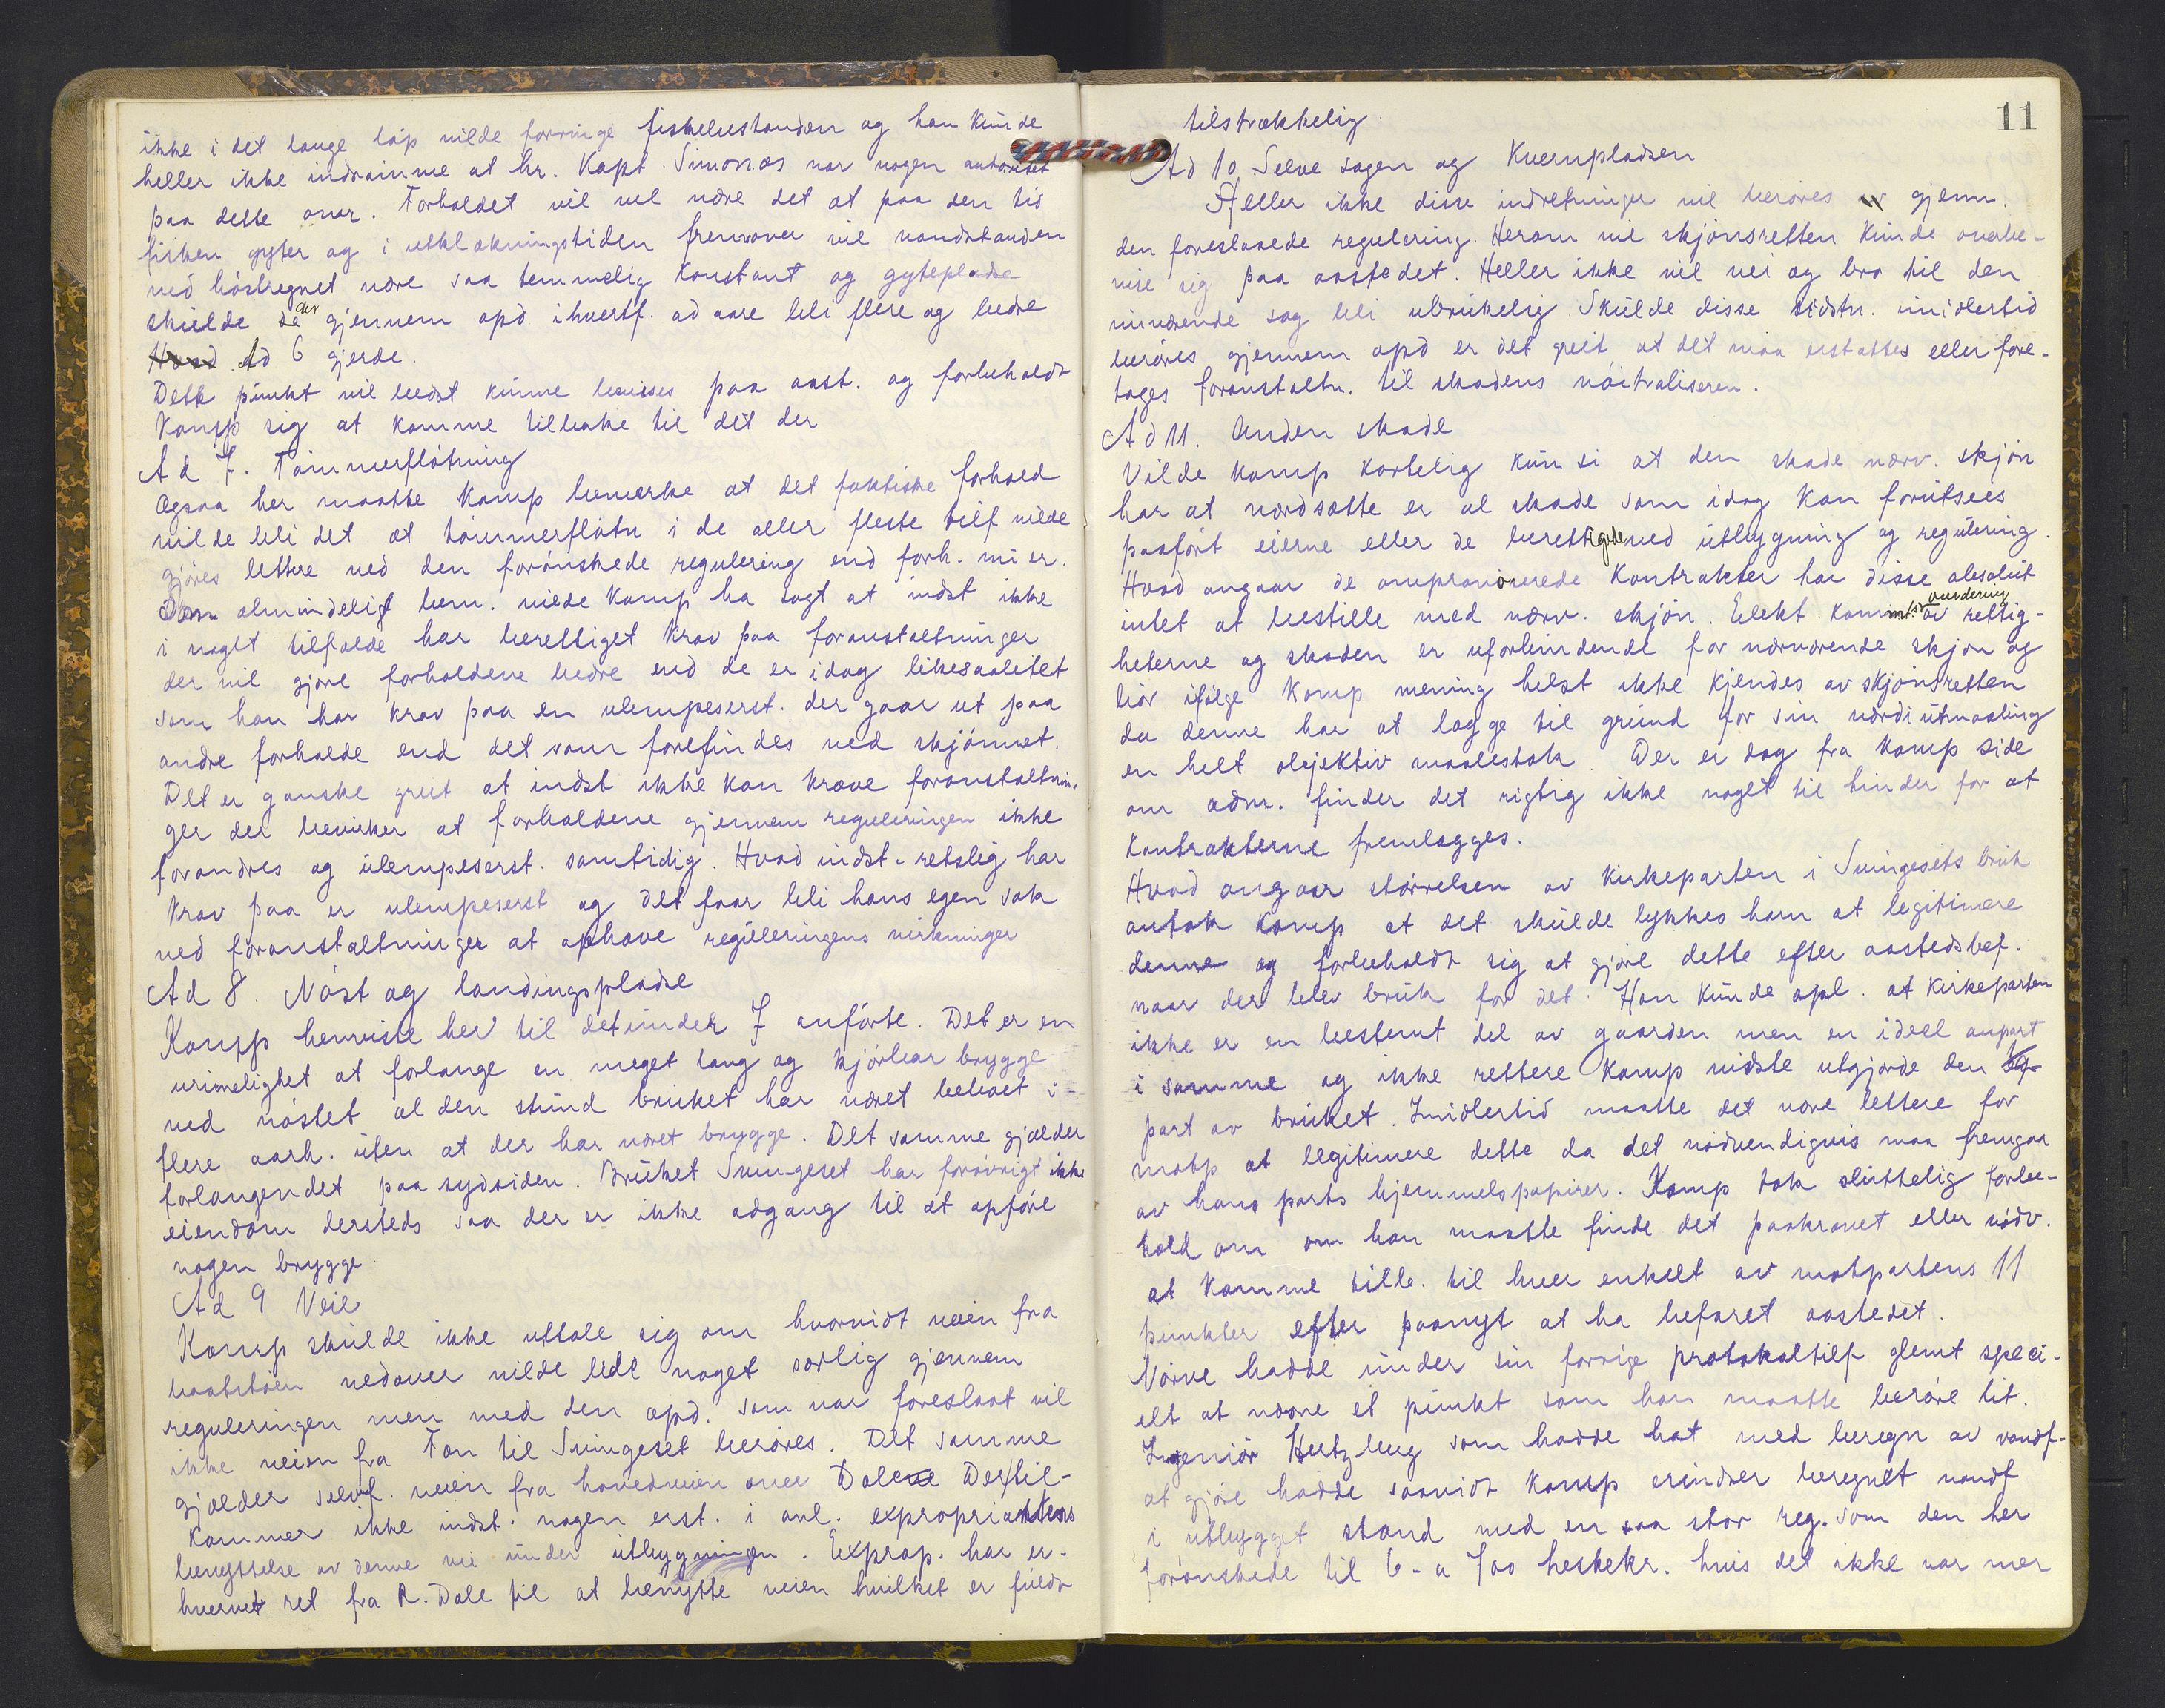 ikke i det lange løp vilde forringe fiskebestanden og han kunde
heller ikke indrømme at hr. Kapt. Simonæs var nogen autoritet
paa dette omr. Forholdet vil vel være det at paa den tid
fisken gyter og i utklækningstiden fremover vil vandstanden
ved höstregnet være saa temmelig konstant og gytepladse
skulde der gjennem opd ihvertf. ad aare bli flere og bedre
Hvad Ad 6 gjerde.
Dette punkt vil bedst kunne bevises paa aast. og forbeholdt
Kamp sig at komme tilbake til det der
Ad 7. Tömmerflötning
Ogsaa her maatte Kamp bemerke at det faktiske forhold
vilde bli det at tömmerflötn i de aller fleste tilf vilde
gjöres lettere ved den forönskede regulering end forh. nu er.
Som almindelig bem. vilde Kamp ha sagt at indst ikke
i noget tilfælde har berettiget krav paa foranstaltninger
der vil gjöre forholdene bedre end de er idag likesaalitet
som han har krav paa en ulempeserst. der gaar ut paa
andre forholde end det som forefindes ved skjönnet.
Det er ganske greit at indst ikke kan kræve foranstaltnin-
ger der bevirker at forholdene gjennem reguleringen ikke
forandres og ulempeserst. samtidig. Hvad indst. retslig har
krav paa er ulempeserst og det faar bli hans egen sak
ved foranstaltninger at ophæve reguleringens virkninger
Ad 8. Nöst og landingspladse
Kamp henviste her til det under 7 anförte. Det er en
urimelighet at forlange en meget lang og kjörbar brygge
ved nöstet al den stund bruket har været beboet i
flere aarh. uten at der har været brygge. Det samme gjælder
forlangendet paa sydsiden. Bruket Svingeset har forövrigt ikke
eiendom dersteds saa der er ikke adgang til at opföre
nogen brygge
Ad 9 Veie
Kamp skulde ikke uttale sig om hvorvidt veien fra
baatstöen nedover vilde lide noget særlig gjennem
reguleringen men med den opd. som var foreslaat vil
ikke veien fra Ton til Svingeset beröres. Det samme
gjælder selvf. veien fra hovedveien over Dale Dertil-
kommer ikke indst. nogen erst. i anl. expropriantens
benyttelse av denne vei under utbygningen. Exprop. har er-
hvervet ret fra R. Dale til at benytte veien hvilket er fuldt
11
tilstrækkelig.
Ad 10 Selve sagen og Kvernpladsen
Heller ikke disse indretninger vil beröres gjenn.
den foreslaaede regulering. Herom vil skjönsretten kunde overbe-
vise sig paa aastedet. Heller ikke vil vei og bro til den
nuværende sag bli ubrukelig. Skulde disse sidstn. imidlertid
beröres gjennem opd er det greit at det maa erstattes eller fore-
tages foranstaltn. til skadens nöitraliseren.
Ad 11. Anden skade
Vilde Kamp kortelig kun si at den skade nærv. skjön
har at værdsætte er al skade som idag kan forutsees
paafört eierne eller de berettigede ved utbygning og regulering.
Hvad angaar de omprovoserede kontrakter har disse absolut
intet at bestille med nærv. skjön. Elekt. komm.s vurdering av rettig-
heterne og skaden er uforbindende for nærværende skjön og
bör ifölge Kamp mening helst ikke kjendes av skjönsretten
da denne har at lægge til grund for sin værdiutmaaling
en helt objektiv maalestok. Der er dog fra Kamp side
om adm. finder det rigtig ikke noget til hinder for at
kontrakterne fremlægges.
Hvad angaar störrelsen av kirkeparten i Svingesets bruk
antok Kamp at det skulde lykkes ham at legitimere
denne og forbeholdt sig at gjöre dette efter aastedsbef.
naar der blev bruk for det. Han kunde opl. at kirkeparten
ikke er en bestemt del av gaarden men en ideel anpart
i samme og ikke rettere Kamp vidste utgjorde den
part av bruket. Imidlertid maatte det være lettere for
motp at legitimere dette da det nödvendigvis maa fremgaa
av hans parts hjemmelspapirer. Kamp tok sluttelig forbe-
hold om om han maatte finde det paakrævet eller nödv.
at komme tilb. til hver enkelt av motpartens 11
punkter efter paanyt at ha befaret aastedet.
Nörve hadde under sin forrige protokoltilf glemt speci-
elt at nævne et punkt som han maatte beröre lit.
Ingeniör Hertzberg som hadde hat med beregn av vandf-
at gjöre hadde saavidt Kamp erindrer beregnet vandf
i utbygget stand med en saa stor reg. som den her
forönskede til 6 - a 700 hestekr. hvis det ikke var mer